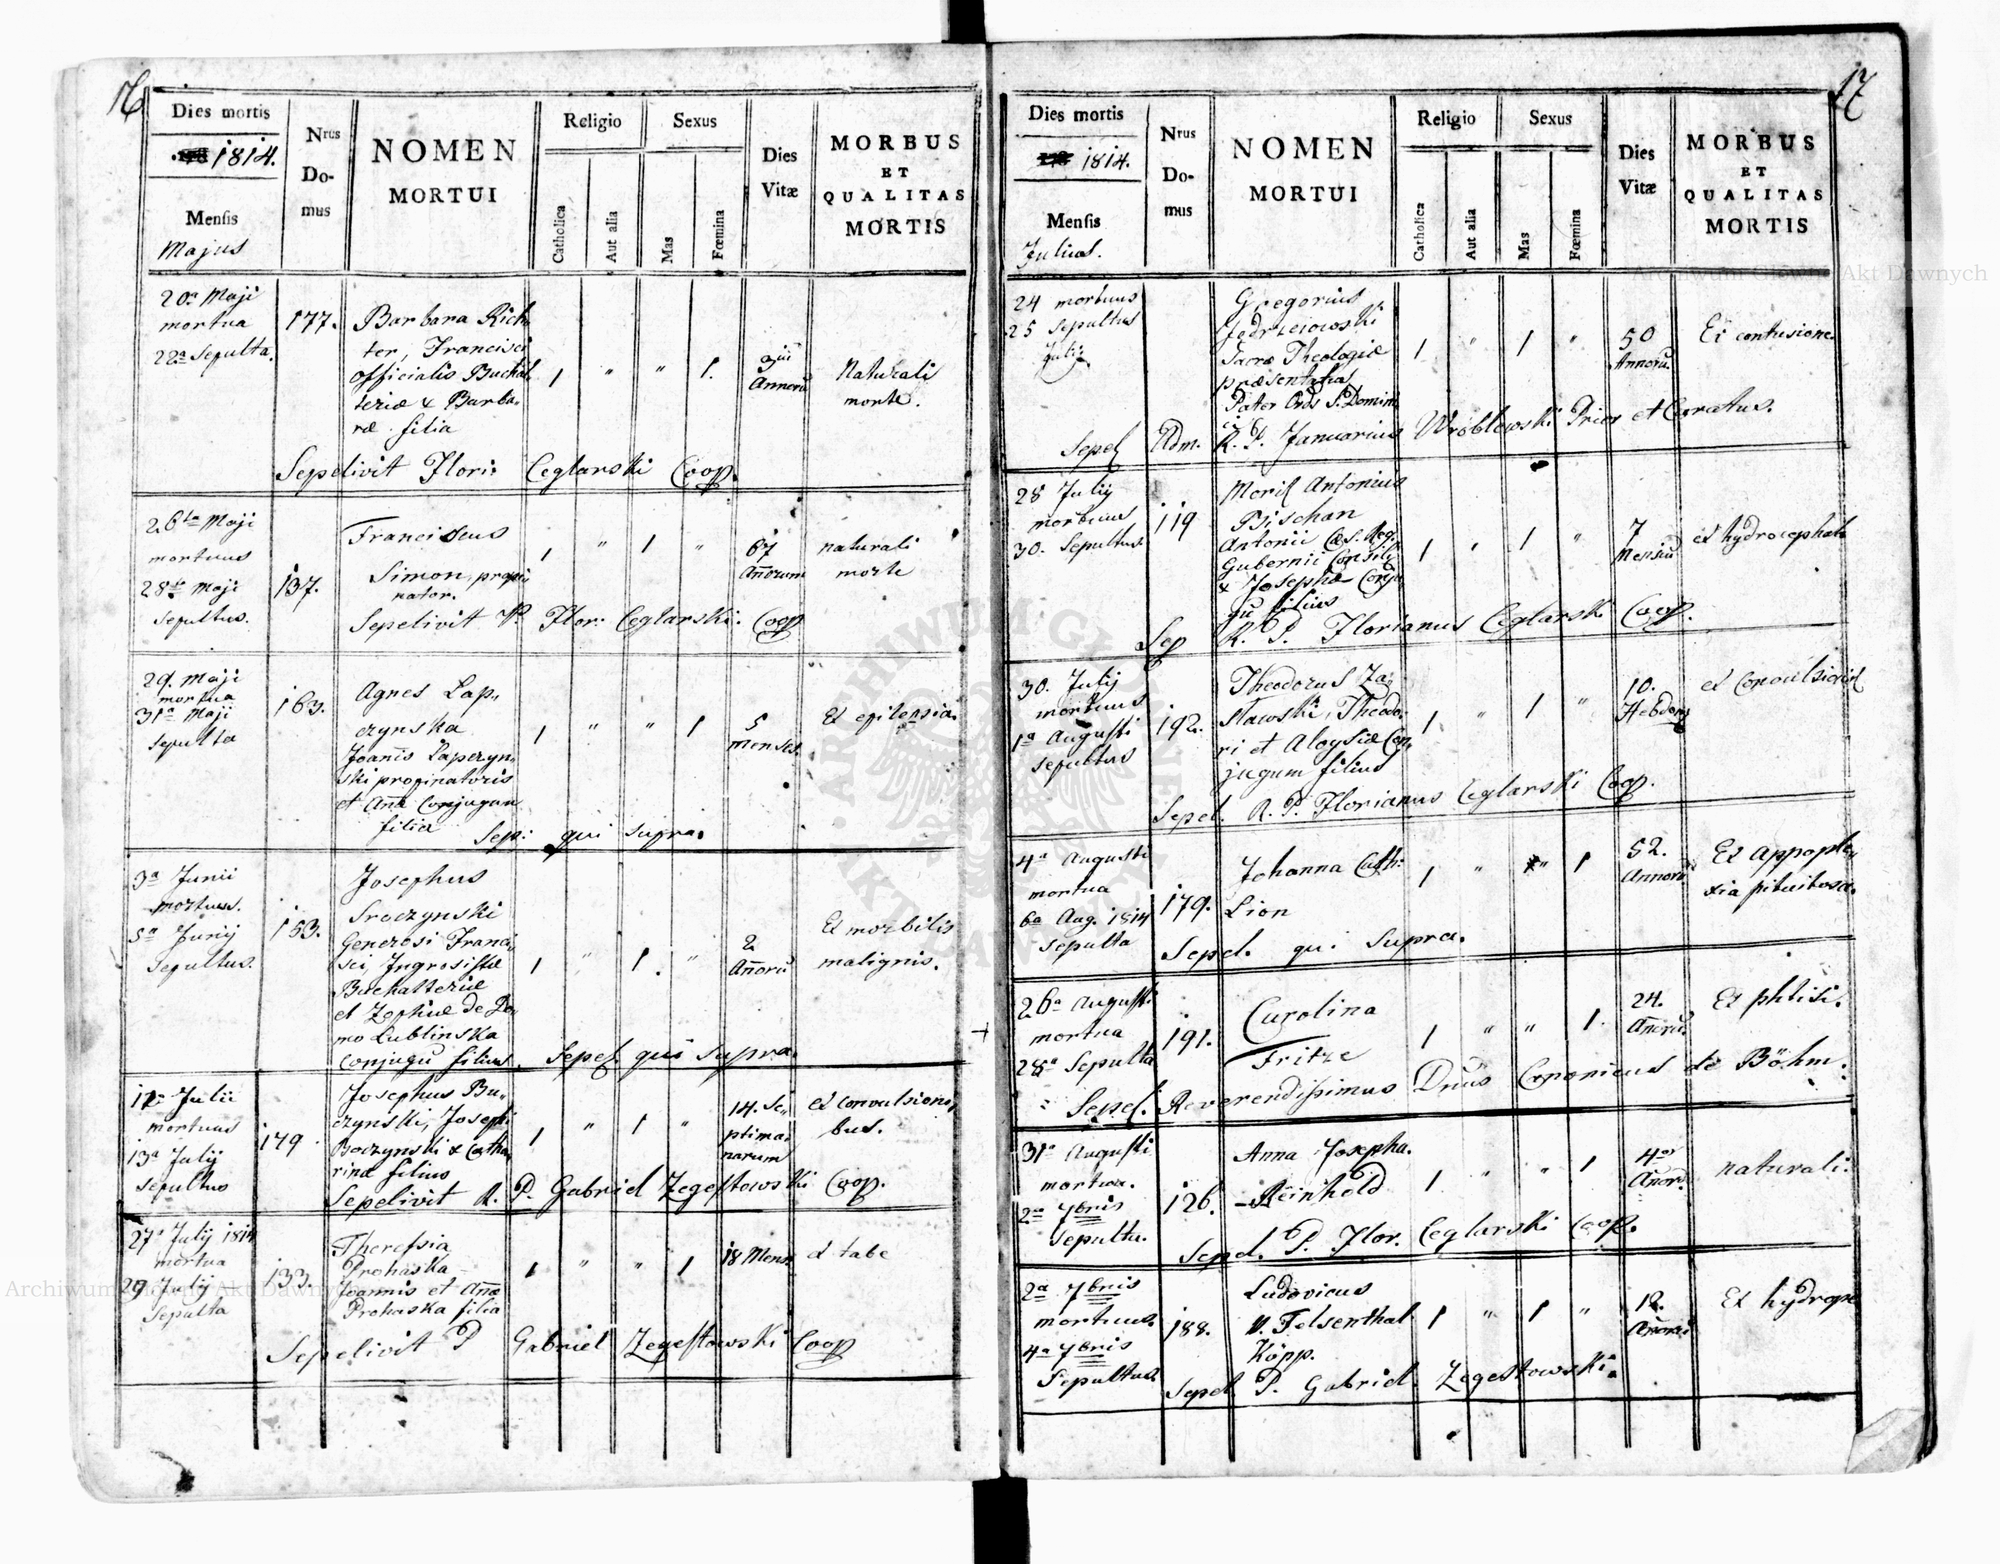 16
Dies mortis
1814.
Mensis
Majus
Nrus
Do-
mus
NOMEN
MORTUI
Religio
Catholica
Aut alia
Sexus
Mas
Fœmina
Dies
Vitæ
MORBUS
ET
QUALITAS
MORTIS
20a Maji
mortua
22a Sepulta.
177.
Barbara Rich-
ter, Francisci
officialis Buchal-
teriæ & Barba-
ræ filia
1 " " 1.
3um
Annorū
Naturali
morte.
Sepelivit Flori: Ceglarski Coop.
26ta Maji
mortuus
28va Maji
sepultus.
137.
Franciscus
Simon, propi-
nator.
1 " 1 "
67
Añorum
naturali
morte
Sepelivit P. Flor: Ceglarski: Coop
29. Maji
mortua
31a Maji
sepulta
163.
Agnes Lap-
czynska
Joanis Lapczyn-
ski propinatoris
et Añæ Conjugum
filia
1 " " 1
5
menses.
Ex epilepsia.
Sep: qui supra.
3a Junii
mortuus.
5a Junij
Sepultus.
153.
Josephus
Sroczynski
Generosi Franci-
sci, Ingrosistæ
Buchalteriæ
et Zophiæ de Do-
mo Lublinska
Conjugū filius.
1 " 1. "
2
Añorū
Ex morbilis
malignis.
Sepel. qui supra.
12a Julii
mortuus
13a Julij
sepultus
179.
Josephus Bu-
czynski, Josephi
Boczynski & Catha-
rinæ filius
1 " 1 "
14. Se-
ptima-
narum
ex convulsioni-
bus.
Sepelivit R. P. Gabriel Zegestowski Coop.
27a Julij 1814
mortua
29 Julij
Sepulta
133.
Theressia
Prohaska
Joannis et Añæ
Prohaska filia
1 " " 1
18 Mens.
ex tabe
Sepelivit P Gabriel Zegestowski Coop
17
Dies mortis
1814.
Mensis
Julius.
Nrus
Do-
mus
NOMEN
MORTUI
Religio
Catholica
Aut alia
Sexus
Mas
Fœmina
Dies
Vitæ
MORBUS
ET
QUALITAS
MORTIS
24 mortuus
25 Sepultus
Julij
Gregorius
Jędrzeiowski
Sacræ Theologiæ
præsentatus
Pater Ords S. Domini-
ci
1 " 1 "
50
Annorū.
Ex contusione.
Sepel Adm. R. P. Januarius Wróblewski Prior et Curatus.
28 Julij
mortuus
30. Sepultus
119
Moritz Antonius
Bischan
Antonii Cæs. Reg.
Gubernii Consilij
& Josephæ Conju-
gū filius
1 " 1 "
7
Mensiū
ex hydrocephalo
Sep R. P. Florianus Ceglarski Coop.
30. Julij
mortuus
1a Augusti
sepultus
192.
Theodorus Za-
slawski, Theodo-
ri et Aloysiæ Con-
jugum filius
1 " 1 "
10.
Hebdom
ex Convulsionis
Sepel. R. P. Florianus Ceglarski Coop.
4a Augusti
mortua
6a Aug. 1814
sepulta
179.
Johanna Cath:
Lion
1 " " 1
52.
Annorū
Ex Appople-
xia pituitosa.
Sepel. qui supra.
26a Augusti
mortua
28a Sepulta
191.
Carolina
Fritze
1 " " 1.
24.
Añorū.
Ex phtisi.
Sepel. Reverendissimus Dnūs Canonicus de Böhm.
31a Augusti
mortua.
2a 7bris
sepulta.
126.
Anna Josepha.
Reinhold
1 " " 1
4or
Añor.
naturali.
Sepel. P. Flor. Ceglarski Coop.
2a 7bris
mortuus.
4a 7bris
Sepultus.
188.
Ludovicus
v. Felsenthal
Köpp.
1 " 1 "
12.
Añorū
Ex hydrope
Sepel P. Gabriel Zegestowski.
Archiwum Główne Akt Dawnych
Archiwum Główne Akt Dawnych
ARCHIWUM GŁÓWNE AKT DAWNYCH